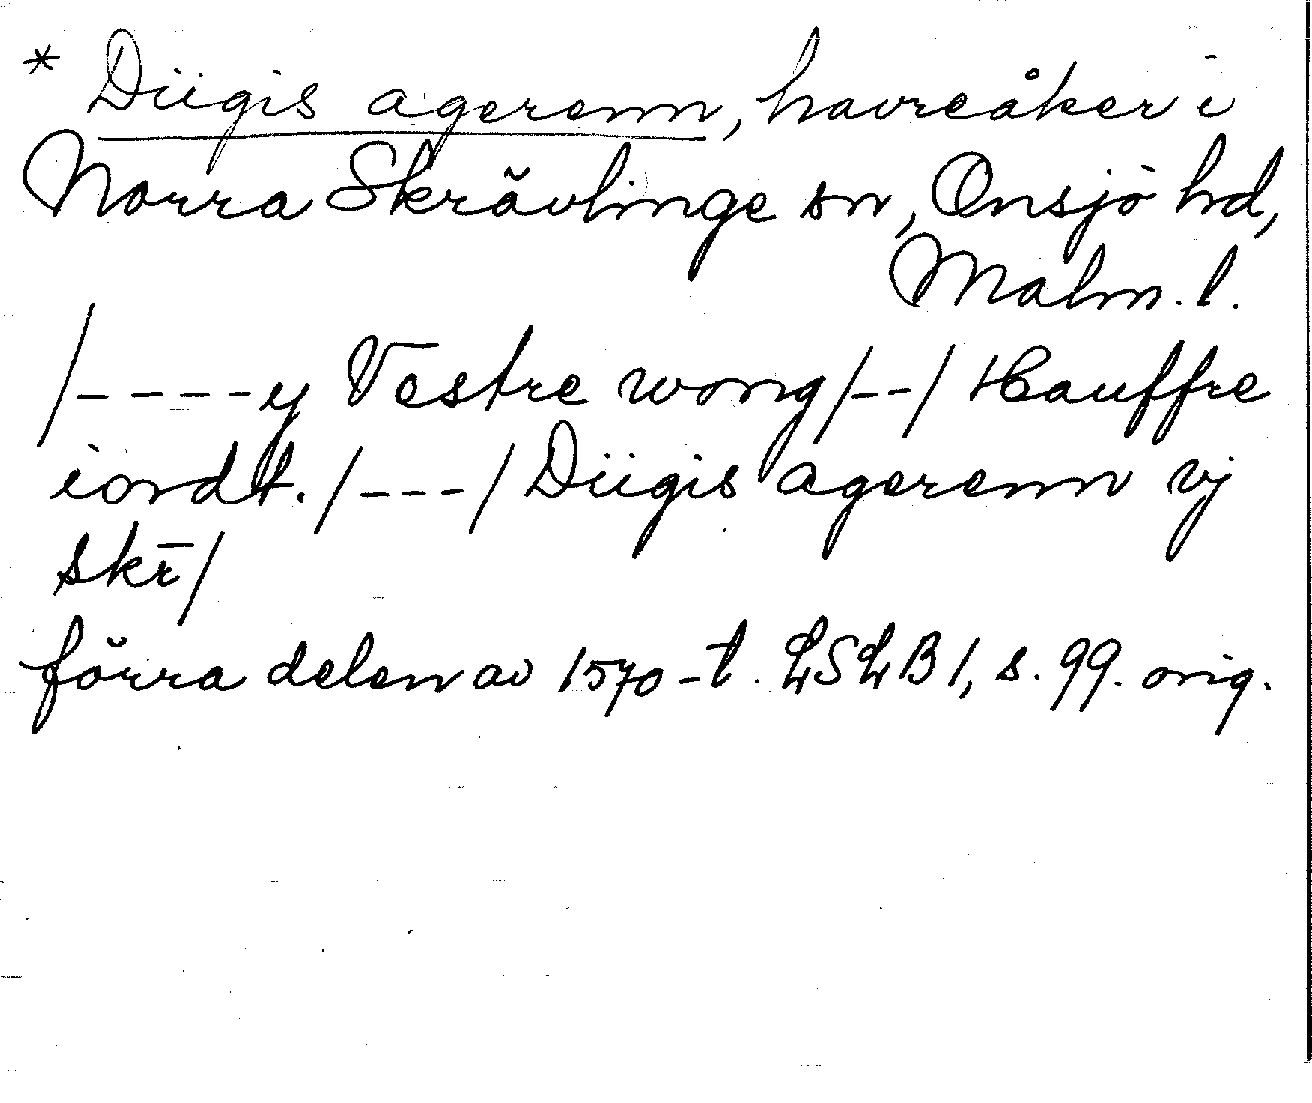 * Diigis agerenn, havreåker i
Norra Skrävlinge sn, Onsjö hd,
Malm. l.
/----y Vestre wong/--/ Hauffre
iordt. /---/ Diigis agerenn vj
skr̄/
förra delen av 1570-t. LSLB 1, s. 99. orig.